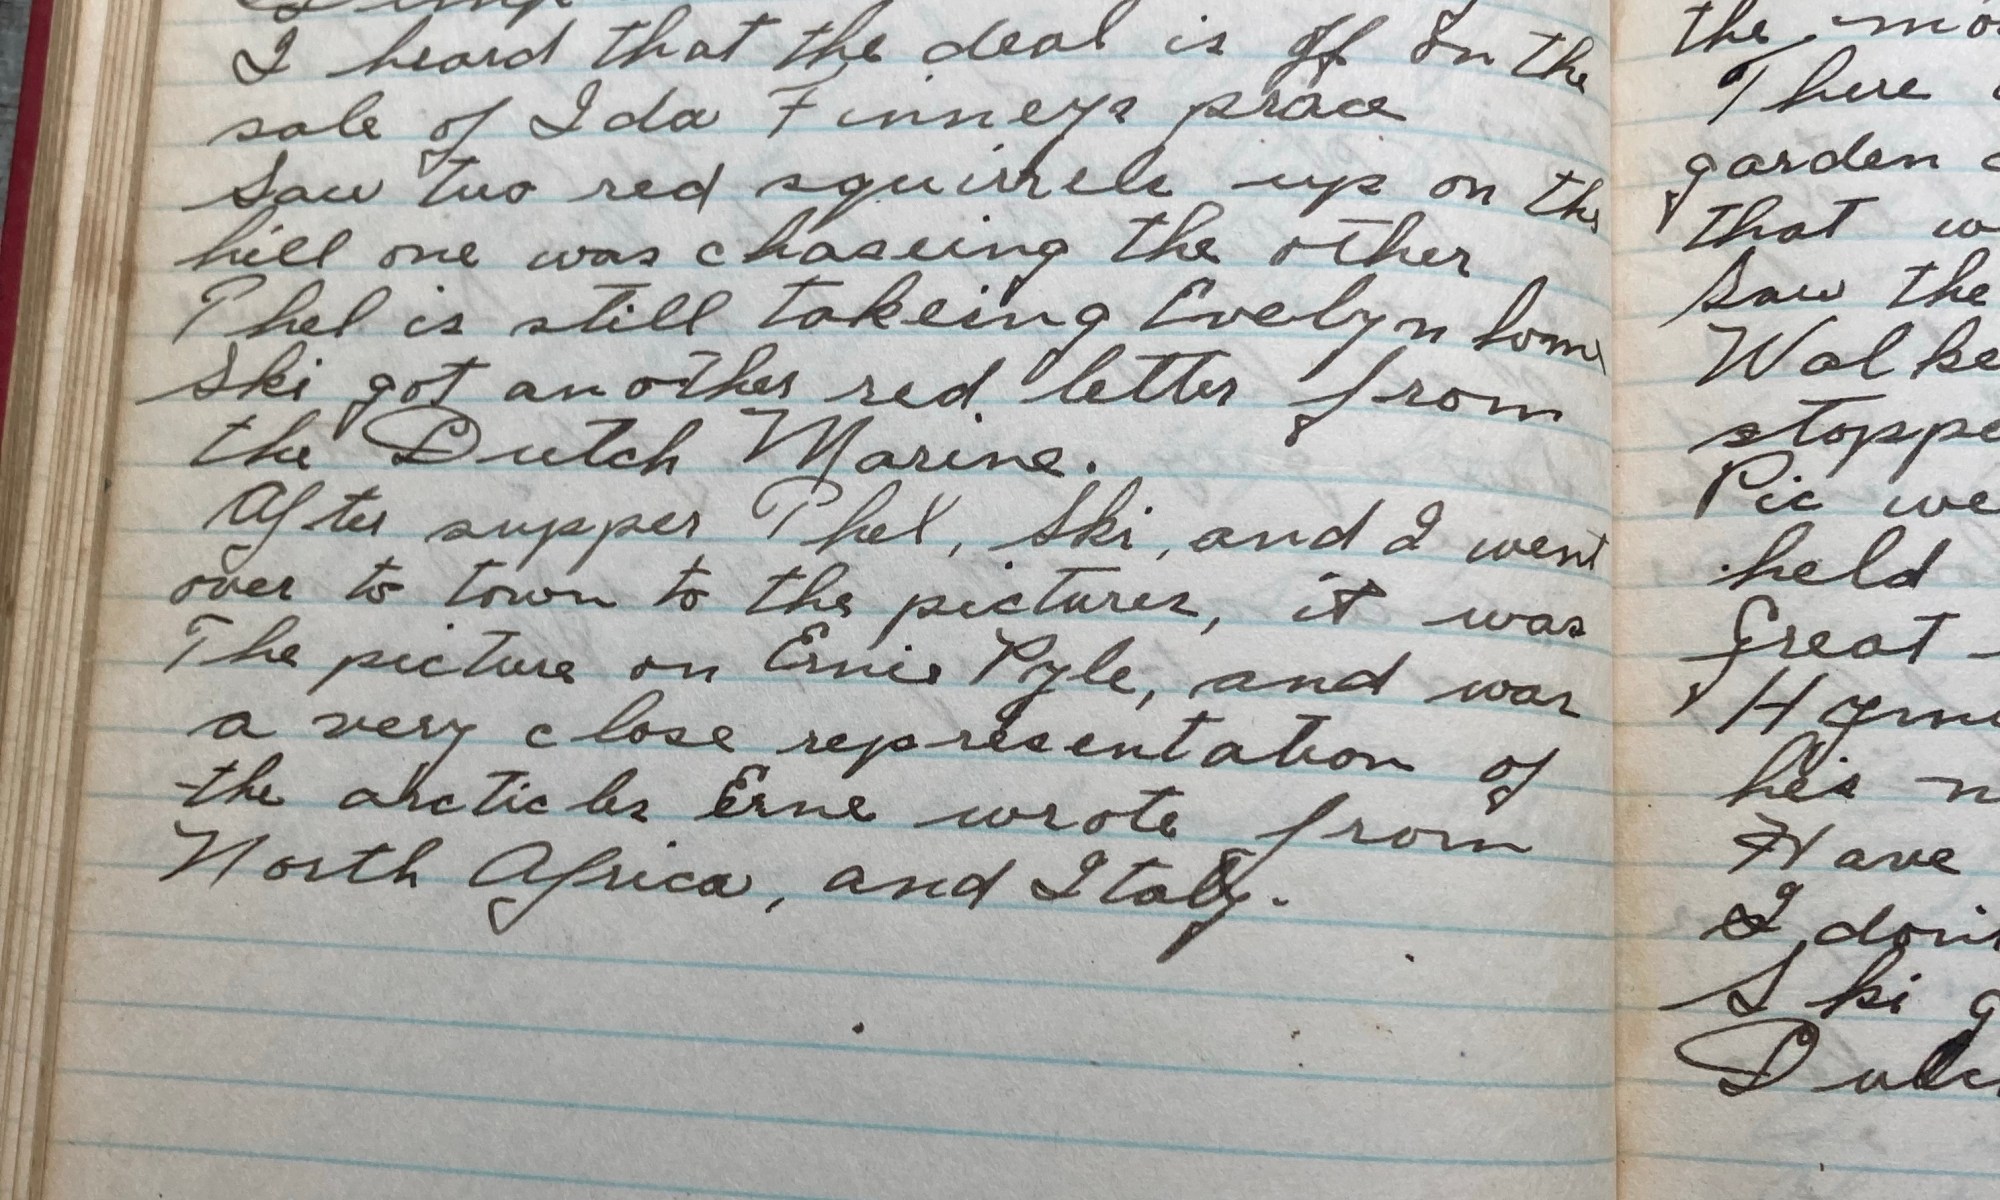 I heard that the deal is off on the
sale of Ida Finneys place
Saw two red squirrels up on the
hill one was chaseing the other
Phel is still takeing Evelyn home
Ski got another red letter from
the Dutch Marine.
After supper Phel, Ski, and I went
over to town to the pictures, it was
The picture on Ernie Pyle, and was
a very close representation of
the articles Erne wrote from
North Africa, and Italy.
the
There
garden
that
Saw the
stoppe
Pic we
held
Great
his
Have
I don't
Ski